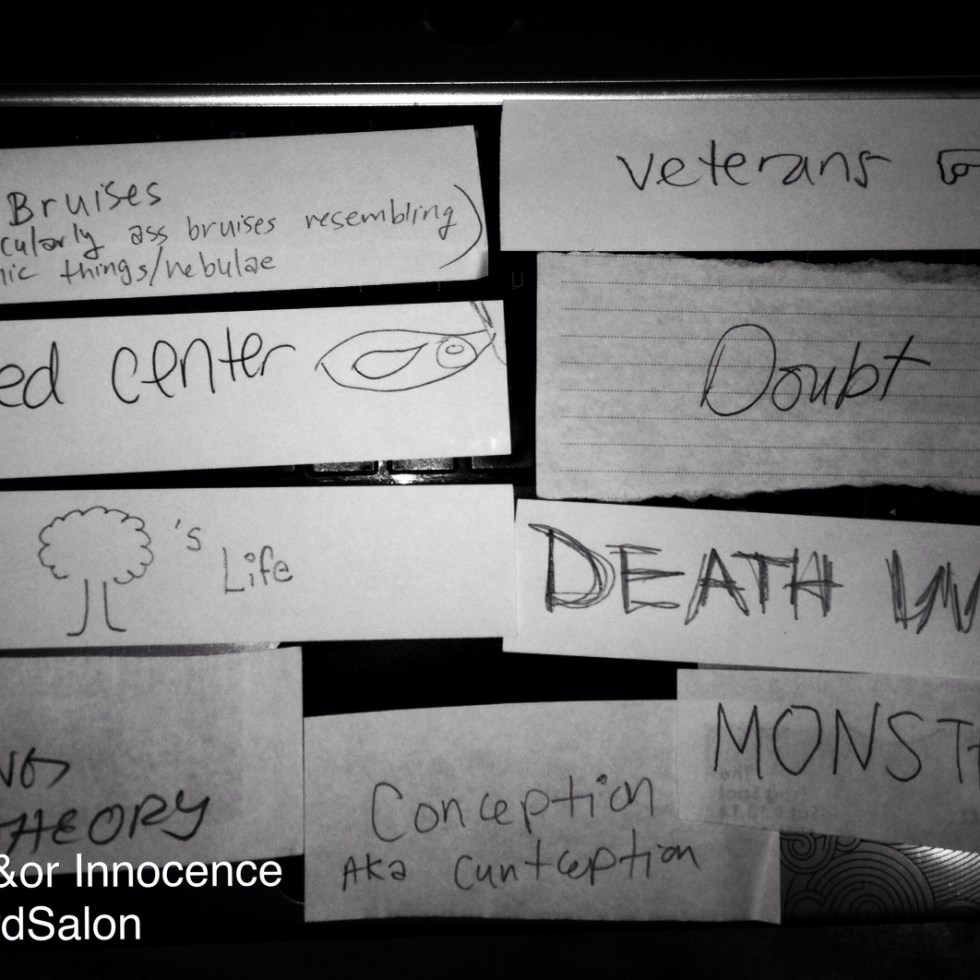 Bruises
cularly ass bruises resembling)
ic things/nebulae
veterans
ed center
Doubt
's Life
DEATH
MONST
THEORY
Conception
AKA Cuntception
&or Innocence
rdSalon